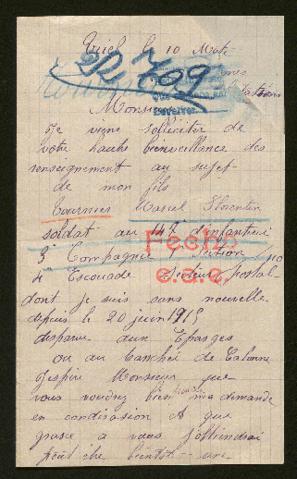 Triel le 10
R 709
Monsieur
Je viens solliciter de
votre haute bienveillance des
renseignement au sujet
de mon fils
Tournier Marcel Florentin
soldat au 147 d'infanterie
5 Compagnie Section
4 Escouade Secteur postal
dont je suis sans nouvelle
depuis le 20 juin 1915
disparue aux Eparges
ou au tranchée de Calonne
J'espère Monsieur que
vous voudrez bien prendre ma demande
en considération et que
grace a vous j'obtiendrai
peut être bientôt une
Fech.
e.a.e.